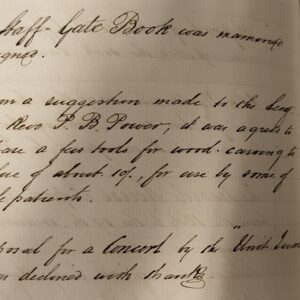 Staff Gate Book was examined
signed.
om a suggestion made to the Secy.
Revd P. B. Power, it was agreed to
ase a few tools for wood carving to
lue of about 10/-, for use by some of
e patients.
posal for a Concert by the "Unit
s declined with thanks.